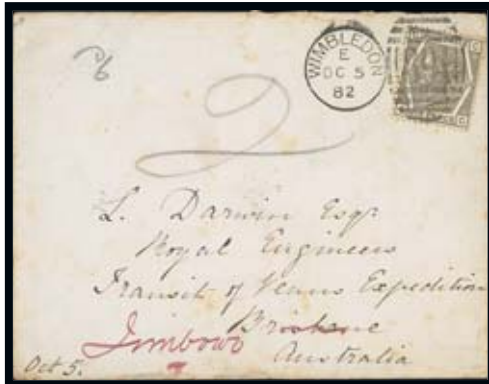 WIMBLEDON
E
OC 5
82
2
L. Darwin Esqr
Royal Engineers
Transit of Venus Expedition
Brisbane
Jimbour
Australia
Oct 5.